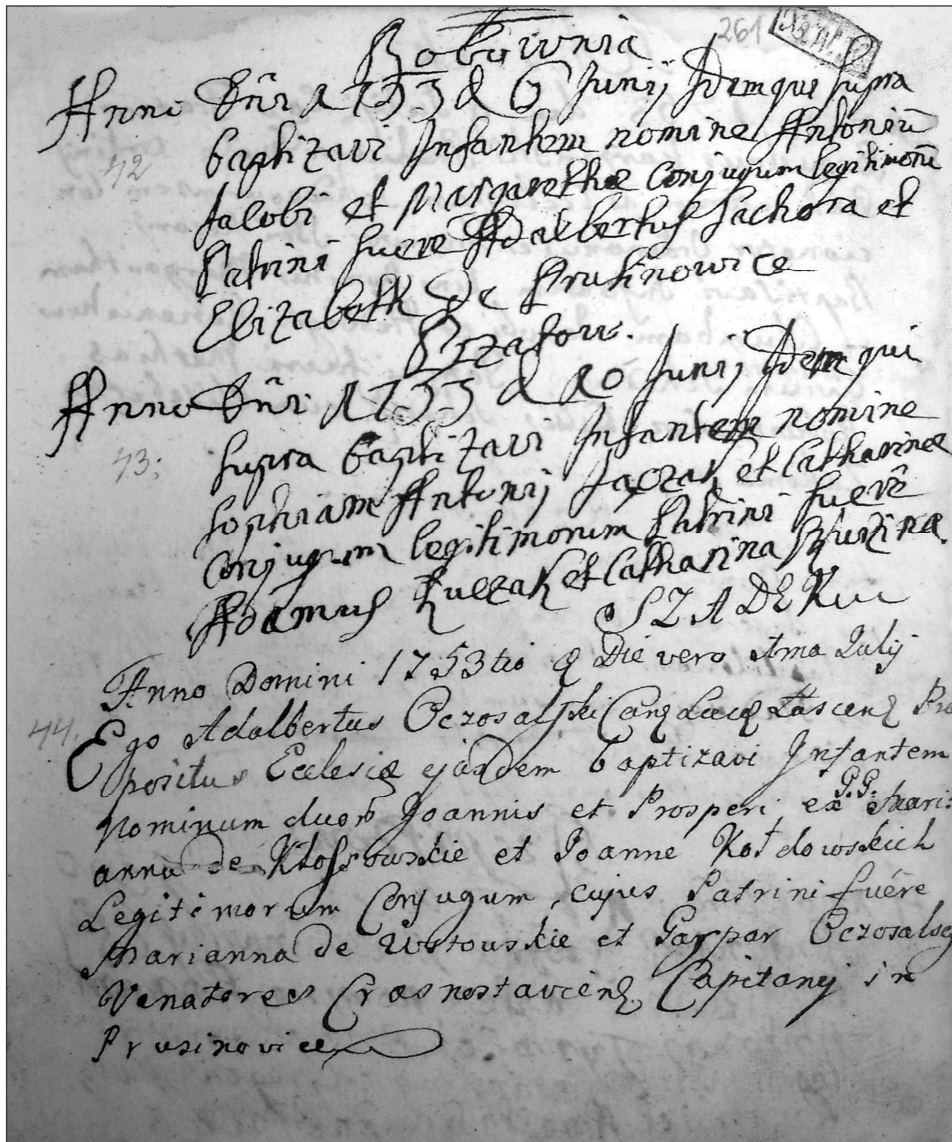 261
Bobownia
Anno Dnī 1753 d 6 Junij Idem qui supra
42 baptizavi Infantem nomine Antoniū
Jacobi et Margarethæ Conjugum legitimorū
Patrini fuere Adalbertus Sachora et
Elizabeth De Prusinowice
Anno Dnī 1753 d 10 Junij Idem qui
43; supra baptizavi Infantem nomine
Sophiam Antonij et Catharinæ
Conjugum legitimorum Patrini fuerē
Adamus et Catharina
SZADEK
Anno Domini 1753tio Die vero Julij
44. Ego Adalbertus Oczosalski Lascenẜ Præ
positus Ecclesiæ ejusdem baptizavi Infantem
Nominum duorū Joannis et Prosperi ex G.G. Mari
anna de Kłossowskie et Joanne Kołdowskich
Legitimorum Conjugum, cujus Patrini fuêre
Marianna de et Gaspar Oczosalsc
Venatores Crasnostavienẜ Capitanij in
Prusinovice